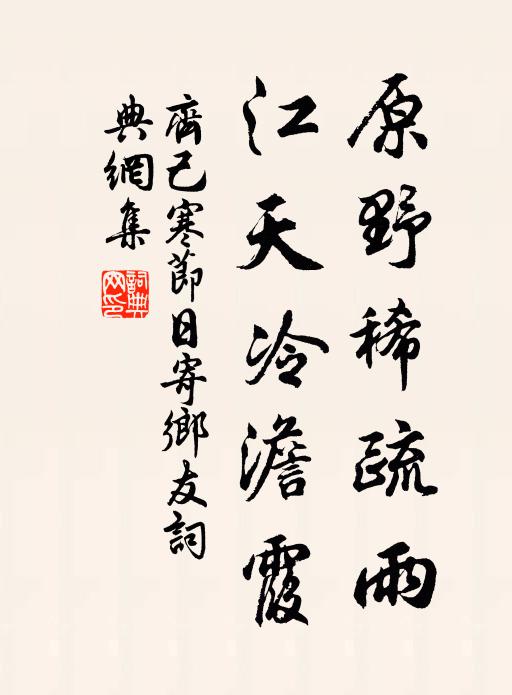 原野稀疏雨
江天冷澹霞
齊己寒節日寄鄉友詞
典網集
詞典網印